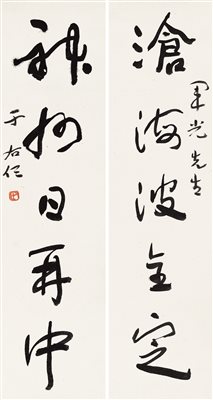 滄海波全定
光先生
神州日再中
于右任